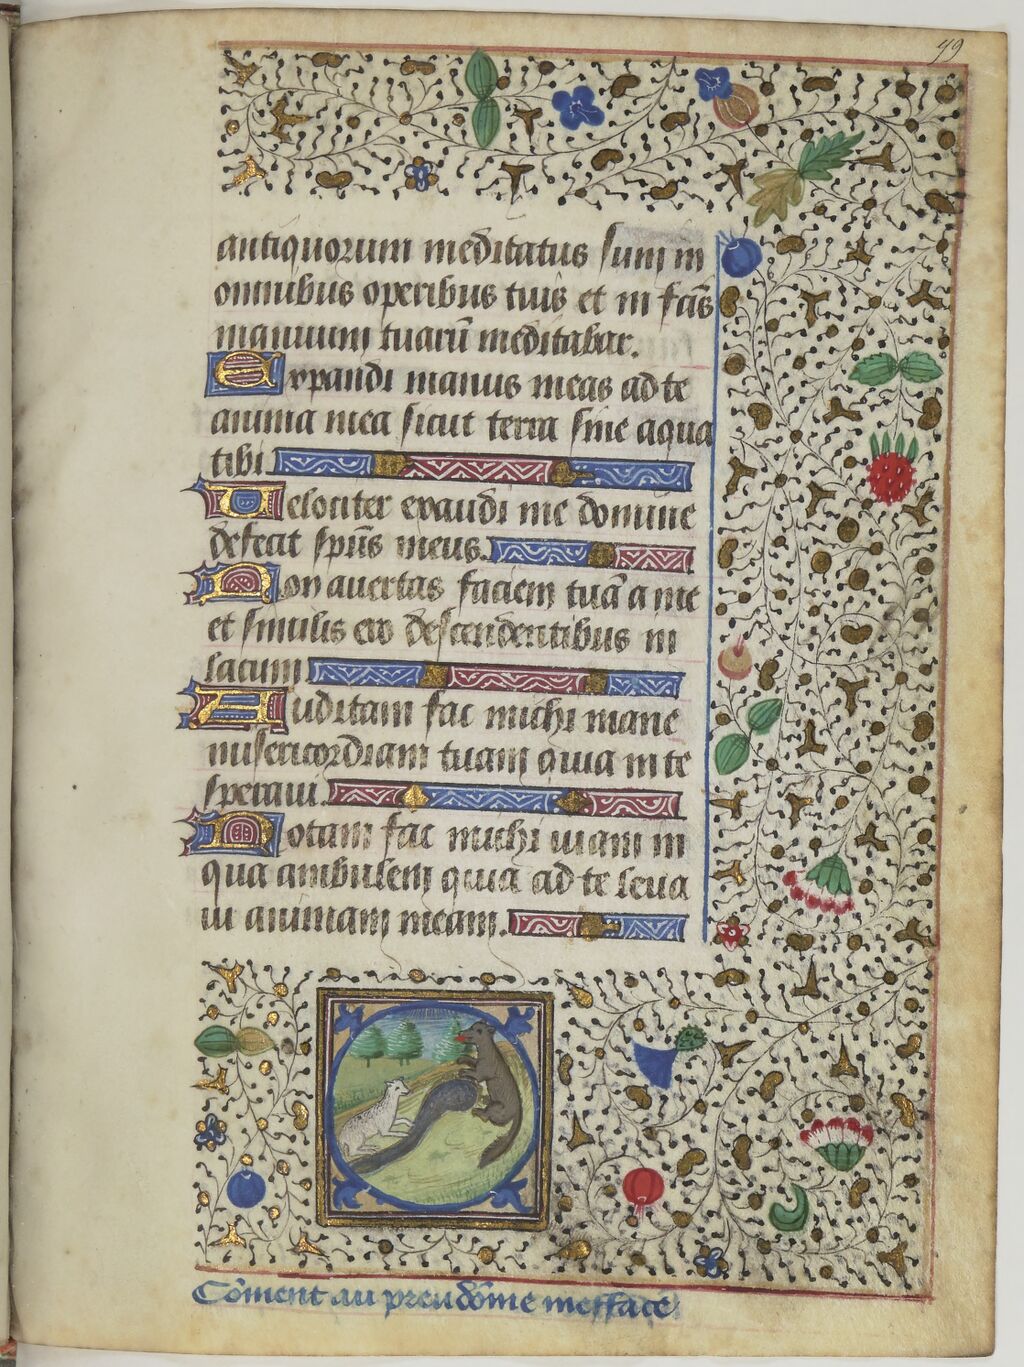 99
antiquorum meditatus sum in
omnibus operibus tuis et in fac̄s
manuum tuarū meditabar.
Expandi manus meas ad te
anima mea sicut terra sine aqua
tibi
Velociter exaudi me domine
defecit spūs meus.
Non avertas faciem tuā a me
et similis ero descendentibus in
lacum
Auditam fac michi mane
misericordiam tuam quia in te
speravi.
Notam fac michi viam in
qua ambulem quia ad te leva
vi animam meam.
Cōment au preudōme messace